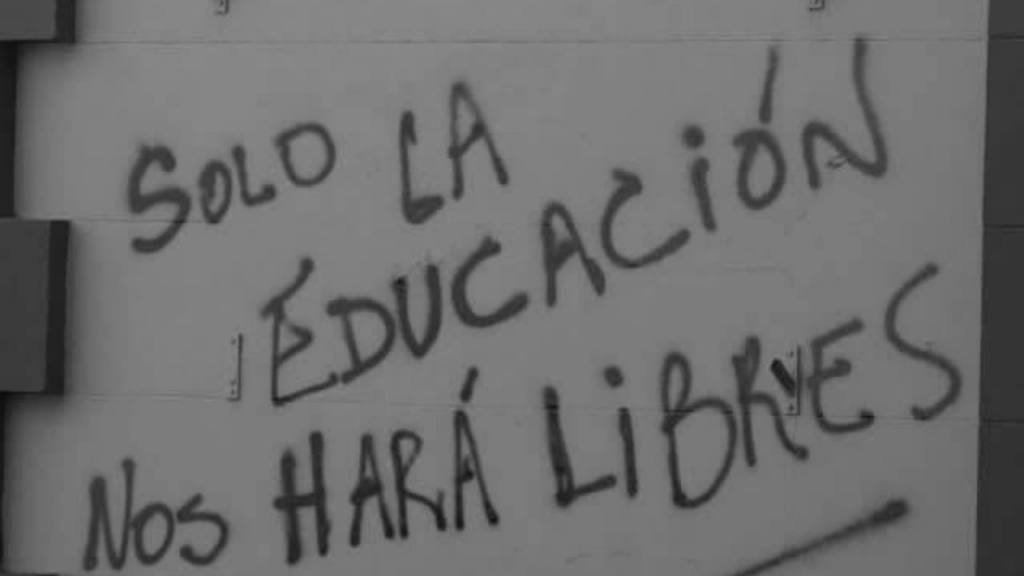 SOLO LA
EDUCACIÓN
NOS HARÁ LIBRES